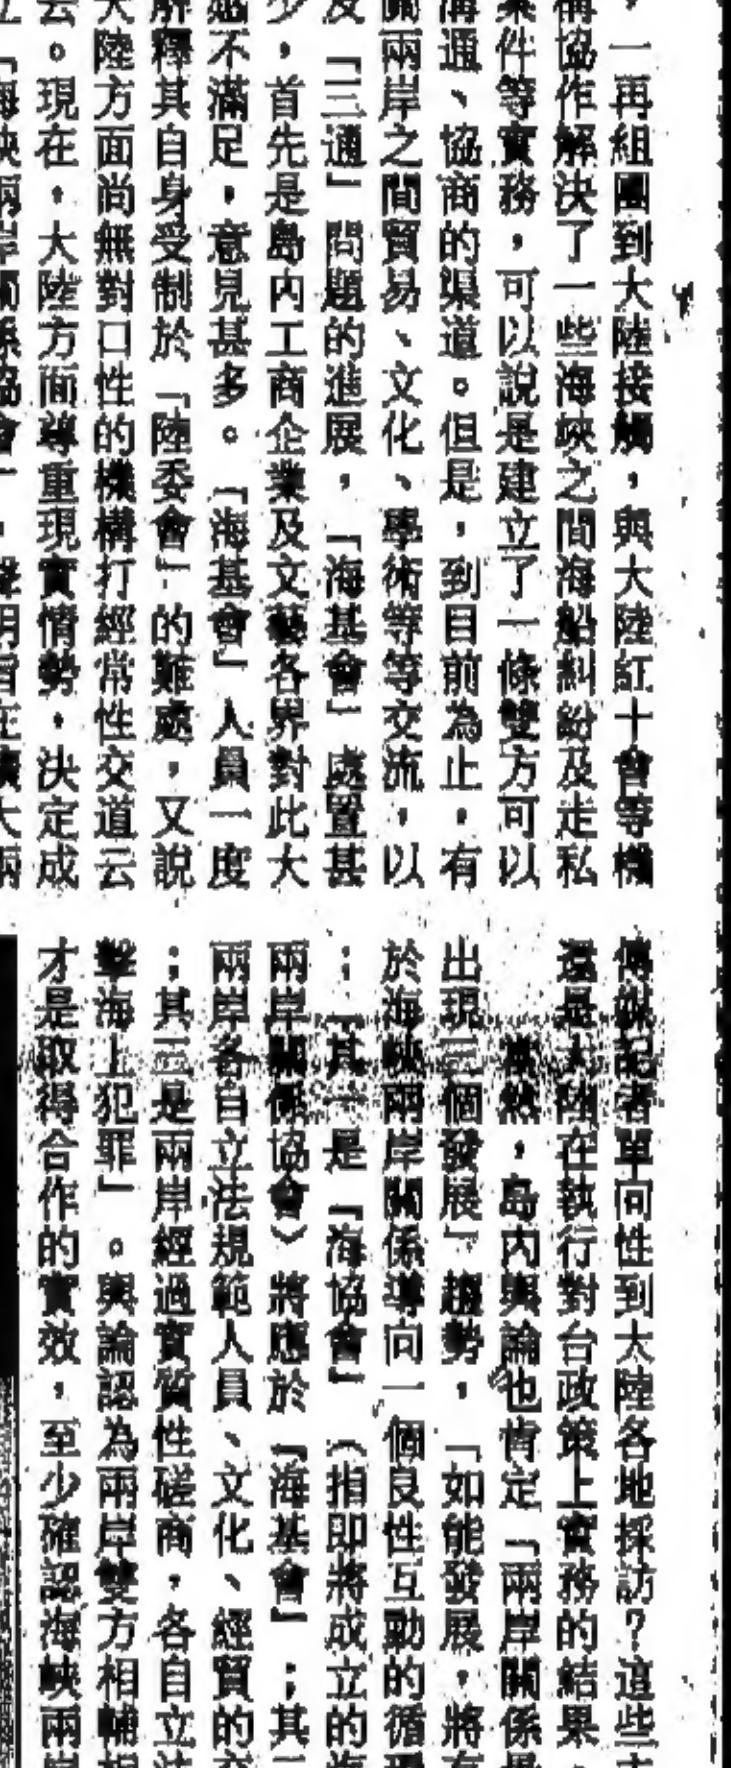 ，一再組團到大陸接觸，與大陸紅十會等機
構協作解決了一些海峽之間海船糾紛及走私
案件等實務，可以說是建立了一條雙方可以
溝通、協商的渠道。但是，到目前為止，有
關兩岸之間貿易、文化、學術等等交流，以
及「三通」問題的進展，「海基會」處置甚
少，首先是島內工商企業及文藝各界對此大
感不滿足，意見甚多。「海基會」人員一度
解釋其自身受制於「陸委會」的難處，又說
大陸方面尚無對口性的機構打經常性交道云
云。現在，大陸方面尊重現實情勢，決定成
立「海峽兩岸關係協會」，聲明旨在擴大兩
傳媒記者單向性到大陸各地採訪？這些
還是大陸在執行對台政策上實務的結果，
然，島內輿論也肯定「兩岸關係
出現三個發展」趨勢，「如能發展，將有
於海峽兩岸關係導向一個良性互動的循環
：「其一是「海協會」（指即將成立的海
兩岸關係協會〉將應於「海基會」；其二
兩岸各自立法規範人員、文化、經貿的交
；其三是兩岸經過實質性磋商，各自立法
擊海上犯罪」。輿論認為兩岸雙方相輔相
才是取得合作的實效，至少確認海峽兩岸